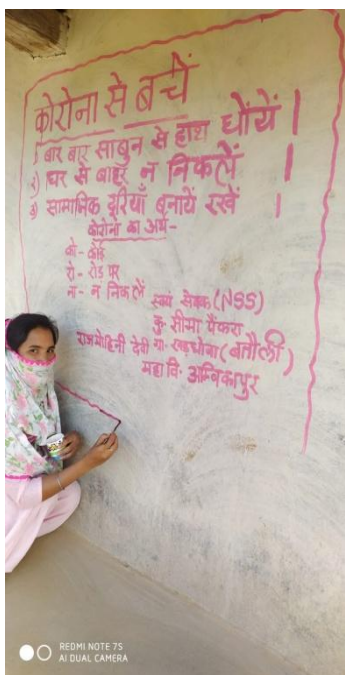 कोरोना से बचें
1) बार बार साबुन से हाथ धोंयें |
२) घर से बाहर न निकलें |
३) सामाजिक दूरियाँ बनायें रखें |
कोरोना का अर्थ-
को - कोई
रो - रोड पर
ना - न निकलें
स्वयं सेवक (NSS)
कु. सीमा पैंकरा
राजमोहिनी देवी ग्रा- (बतौली)
महा वि- अम्बिकापुर
REDMI NOTE 7S
AI DUAL CAMERA